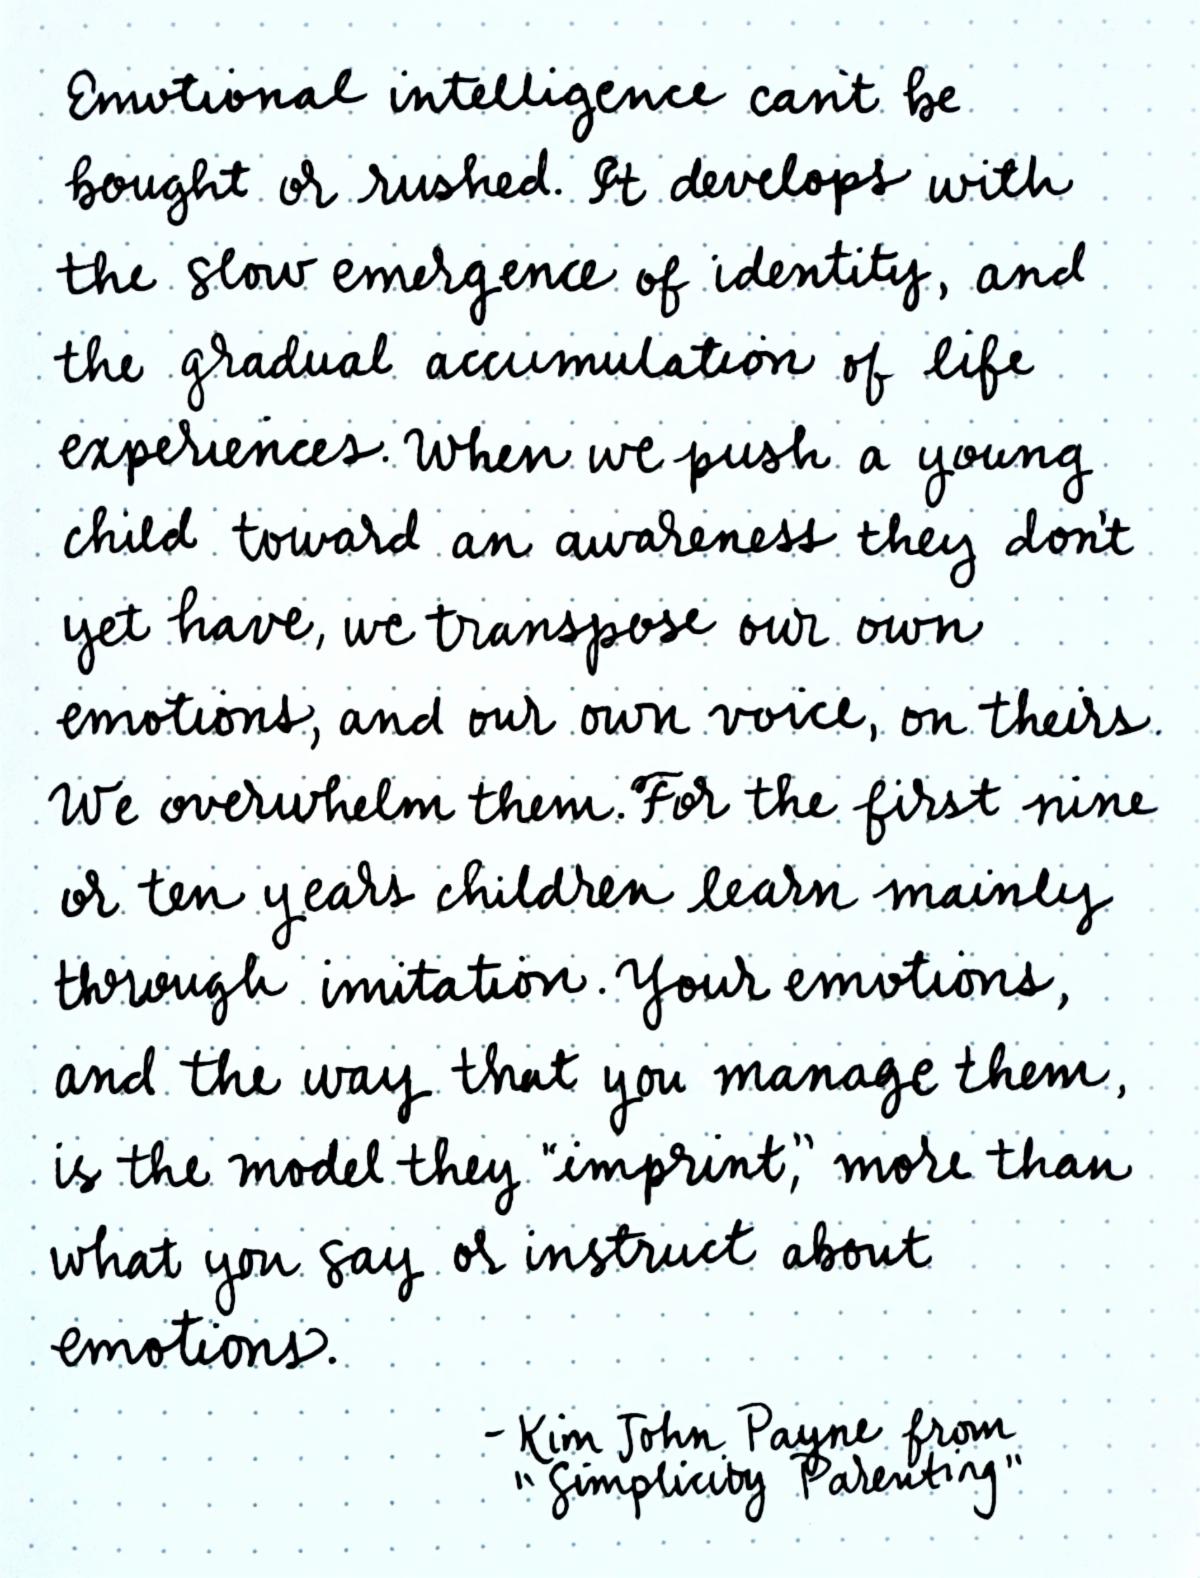 Emotional intelligence can't be
bought or rushed. It develops with
the slow emergence of identity, and
the gradual accumulation of life
experiences. When we push a young
child toward an awareness they don't
yet have, we transpose our own
emotions, and our own voice, on theirs.
We overwhelm them. For the first nine
or ten years children learn mainly
through imitation. Your emotions,
and the way that you manage them,
is the model they "imprint," more than
what you say or instruct about
emotions.
- Kim John Payne from
"Simplicity Parenting"